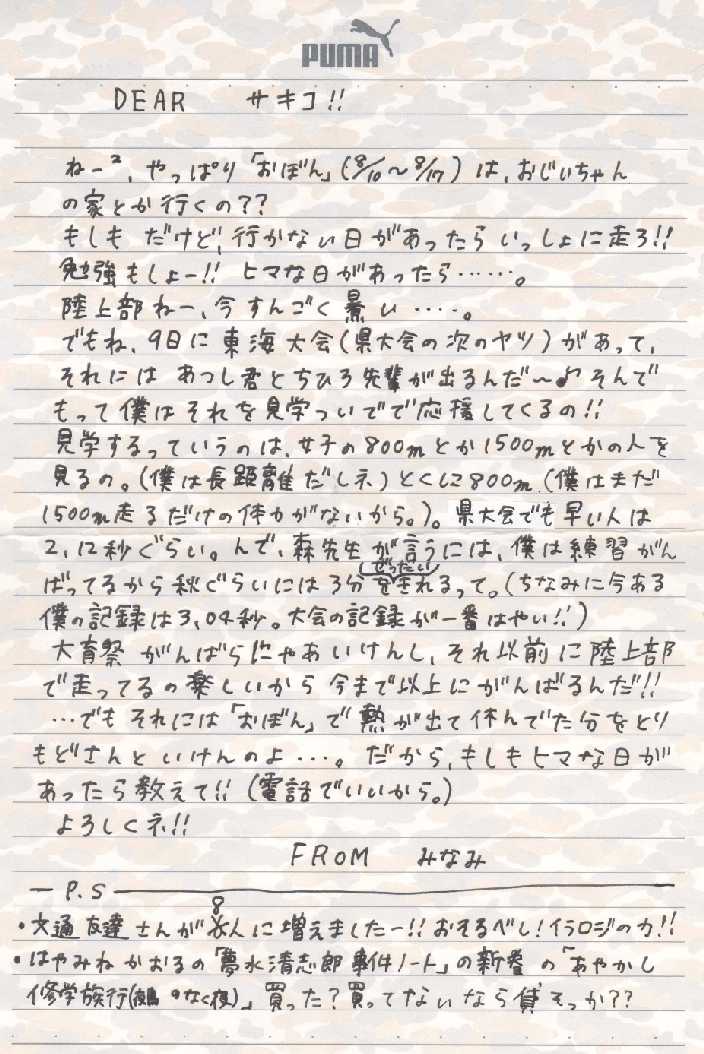 PUMA
DEAR サキコ!!
ねー², やっぱり「おぼん」(8/10〜8/17) は, おじいちゃん
の家とか行くの??
もしも だけど, 行かない日があったら いっしょに走ろ!!
勉強もしょー!! ヒマな日があったら……。
陸上部ねー、今すんごく 暑い ‥‥。
でもね、9日に 東海大会(県大会の次のヤツ)があって、
それには あつし君とちひろ先輩が出るんだ〜♪ そんで
もって僕はそれを見学ついでで応援してくるの!!
見学するっていうのは、女子の800mとか1500mとかの人を
見るの。(僕は長距離だしネ) とくに800m (僕はまだ
1500m走るだけの体力がないから。)。県大会でも早い人は
2,12秒ぐらい。んで、森先生が言うには、僕は練習がん
ばってるから秋ぐらいには3分をぜったい きれるって。(ちなみに今ある
僕の記録は3,04秒。大会の記録が一番はやい!!)
大育祭 がんばらにゃあいけんし、それ以前に陸上部
で走ってるの楽しいから 今まで以上にがんばるんだ!!
…でも それには「おぼん」で 熱が出て休んでた分をとり
もどさんと いけんのよ …。だから、もしもヒマな日が
あったら教えて!! (電話でいいから。)
よろしくネ!!
FROM みなみ
P.S
・文通友達さんが8人に増えましたー!! おそるべし!イラロジの力!!
・はやみねかおるの「夢水清志郎 事件ノート」の新巻 の「あやかし
修学旅行(鵺のなく夜)」買った?買ってないなら貸そっか??